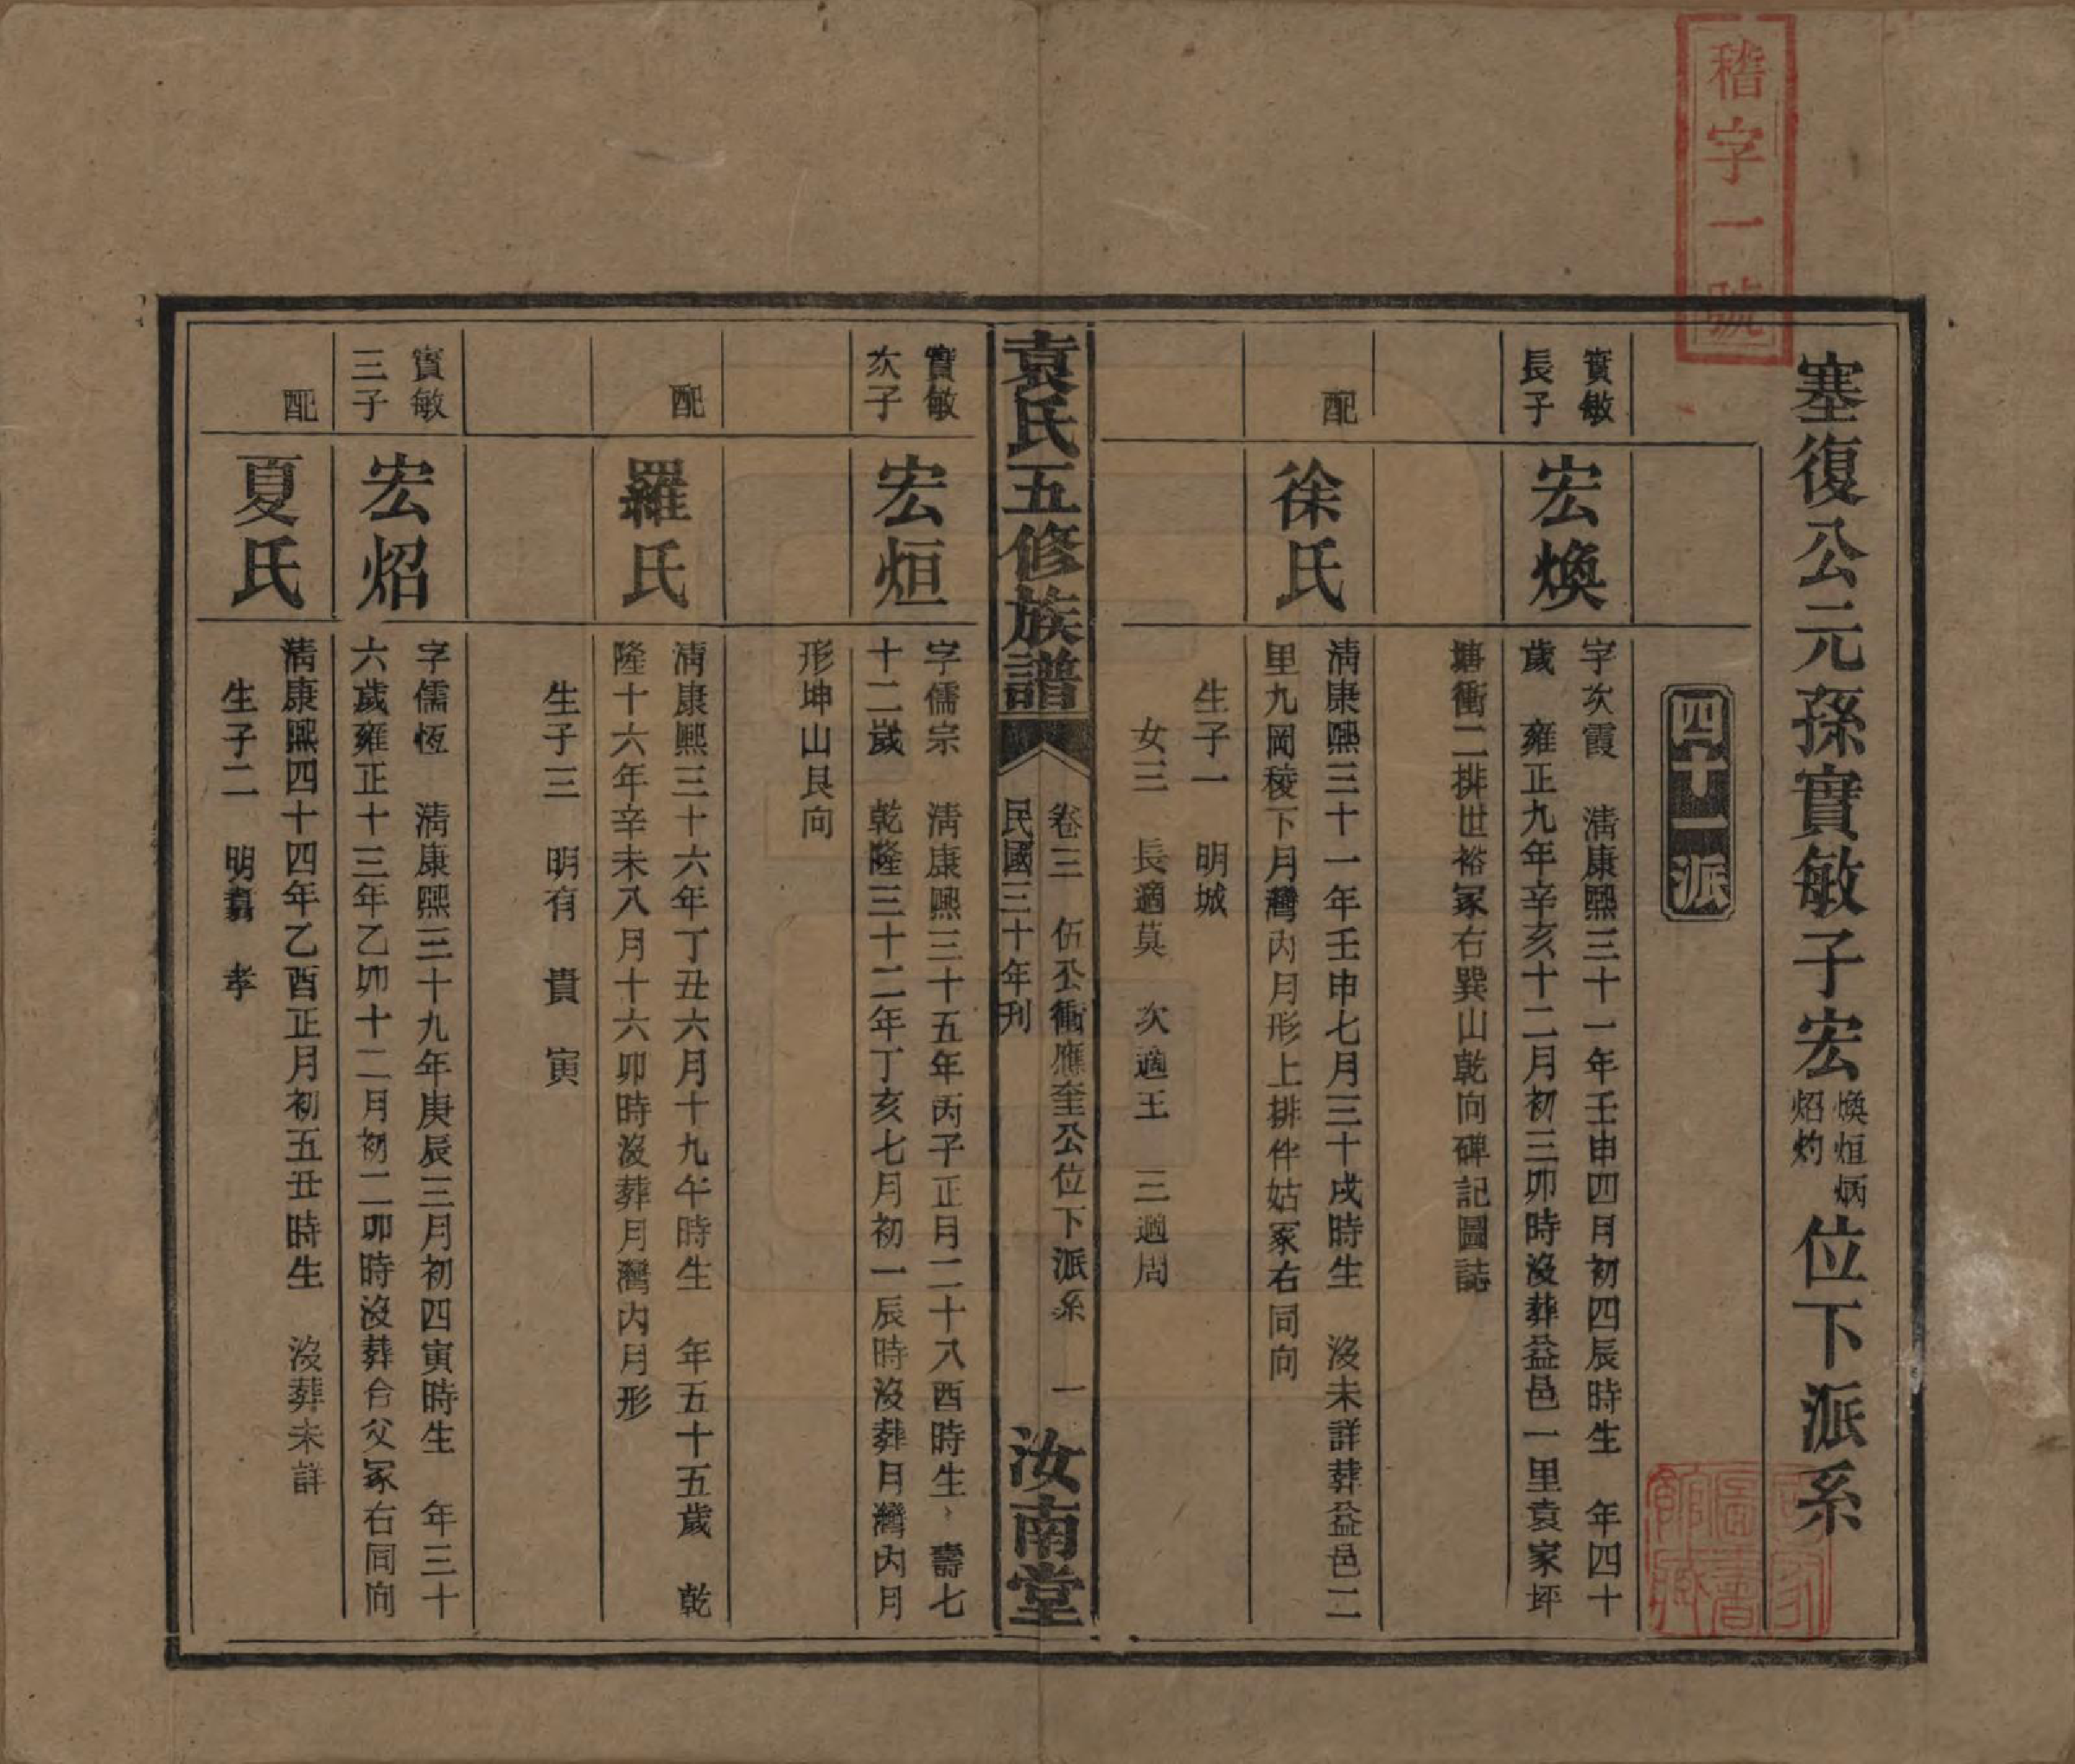 稽字一號
塞復公元孫實敏子宏煥烜炳炤灼位下派系
四十一派
實敏長子
宏煥
字次霞　清康熙三十一年壬申四月初四辰時生　年四十
歲　雍正九年辛亥十二月初三卯時沒葬益邑一里袁家坪
塘衝二排世裕冢右巽山乾向碑記圖誌
配
徐氏
清康熙三十一年壬申七月三十戌時生　沒未詳葬益邑二
里九岡稜下月灣內月形上排伴姑冢右同向
生子一　明城
女三　長適莫　次適王　三適周
袁氏五修族譜
卷三　伍公衝應奎公位下派系　一
民國三十年刊
汝南堂
實敏次子
宏烜
字儒宗　清康熙三十五年丙子正月二十八酉時生、壽七
十二歲　乾隆三十二年丁亥七月初一辰時沒葬月灣內月
形坤山艮向
配
羅氏
清康熙三十六年丁丑六月十九午時生　年五十五歲　乾
隆十六年辛未八月十六卯時沒葬月灣內月形
生子三　明有　貴　寅
實敏三子
宏炤
字儒恆　清康熙三十九年庚辰三月初四寅時生　年三十
六歲雍正十三年乙卯十二月初二卯時沒葬合父冢右同向
配
夏氏
清康熙四十四年乙酉正月初五丑時生　沒葬未詳
生子二　明　孝